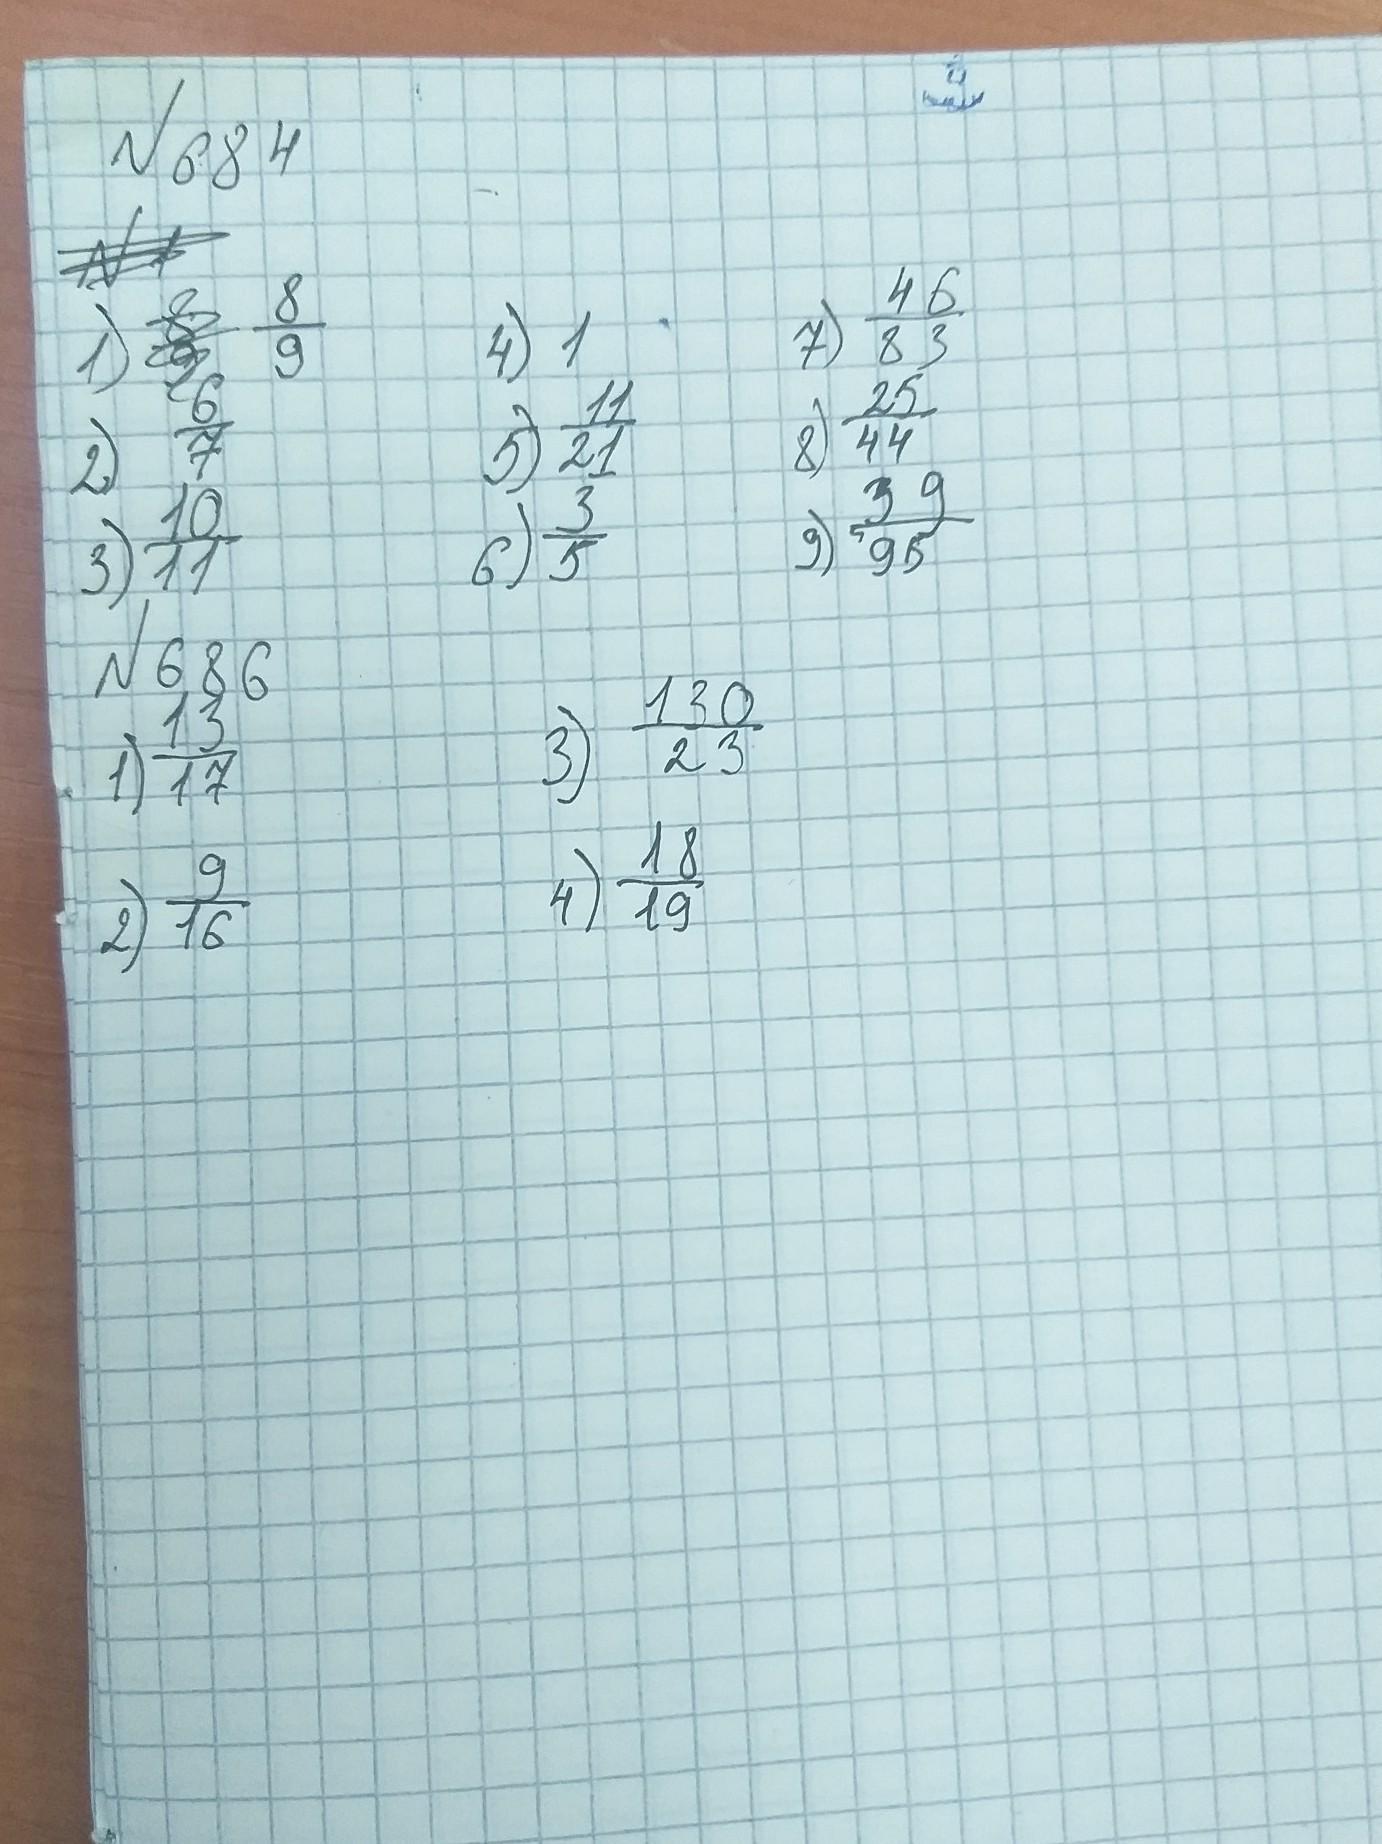 №684
1) 8/9
2) 6/7
3) 10/11
4) 1
5) 11/21
6) 3/5
7) 46/83
8) 25/44
9) 39/95
№686
1) 13/17
2) 9/16
3) 130/23
4) 18/19